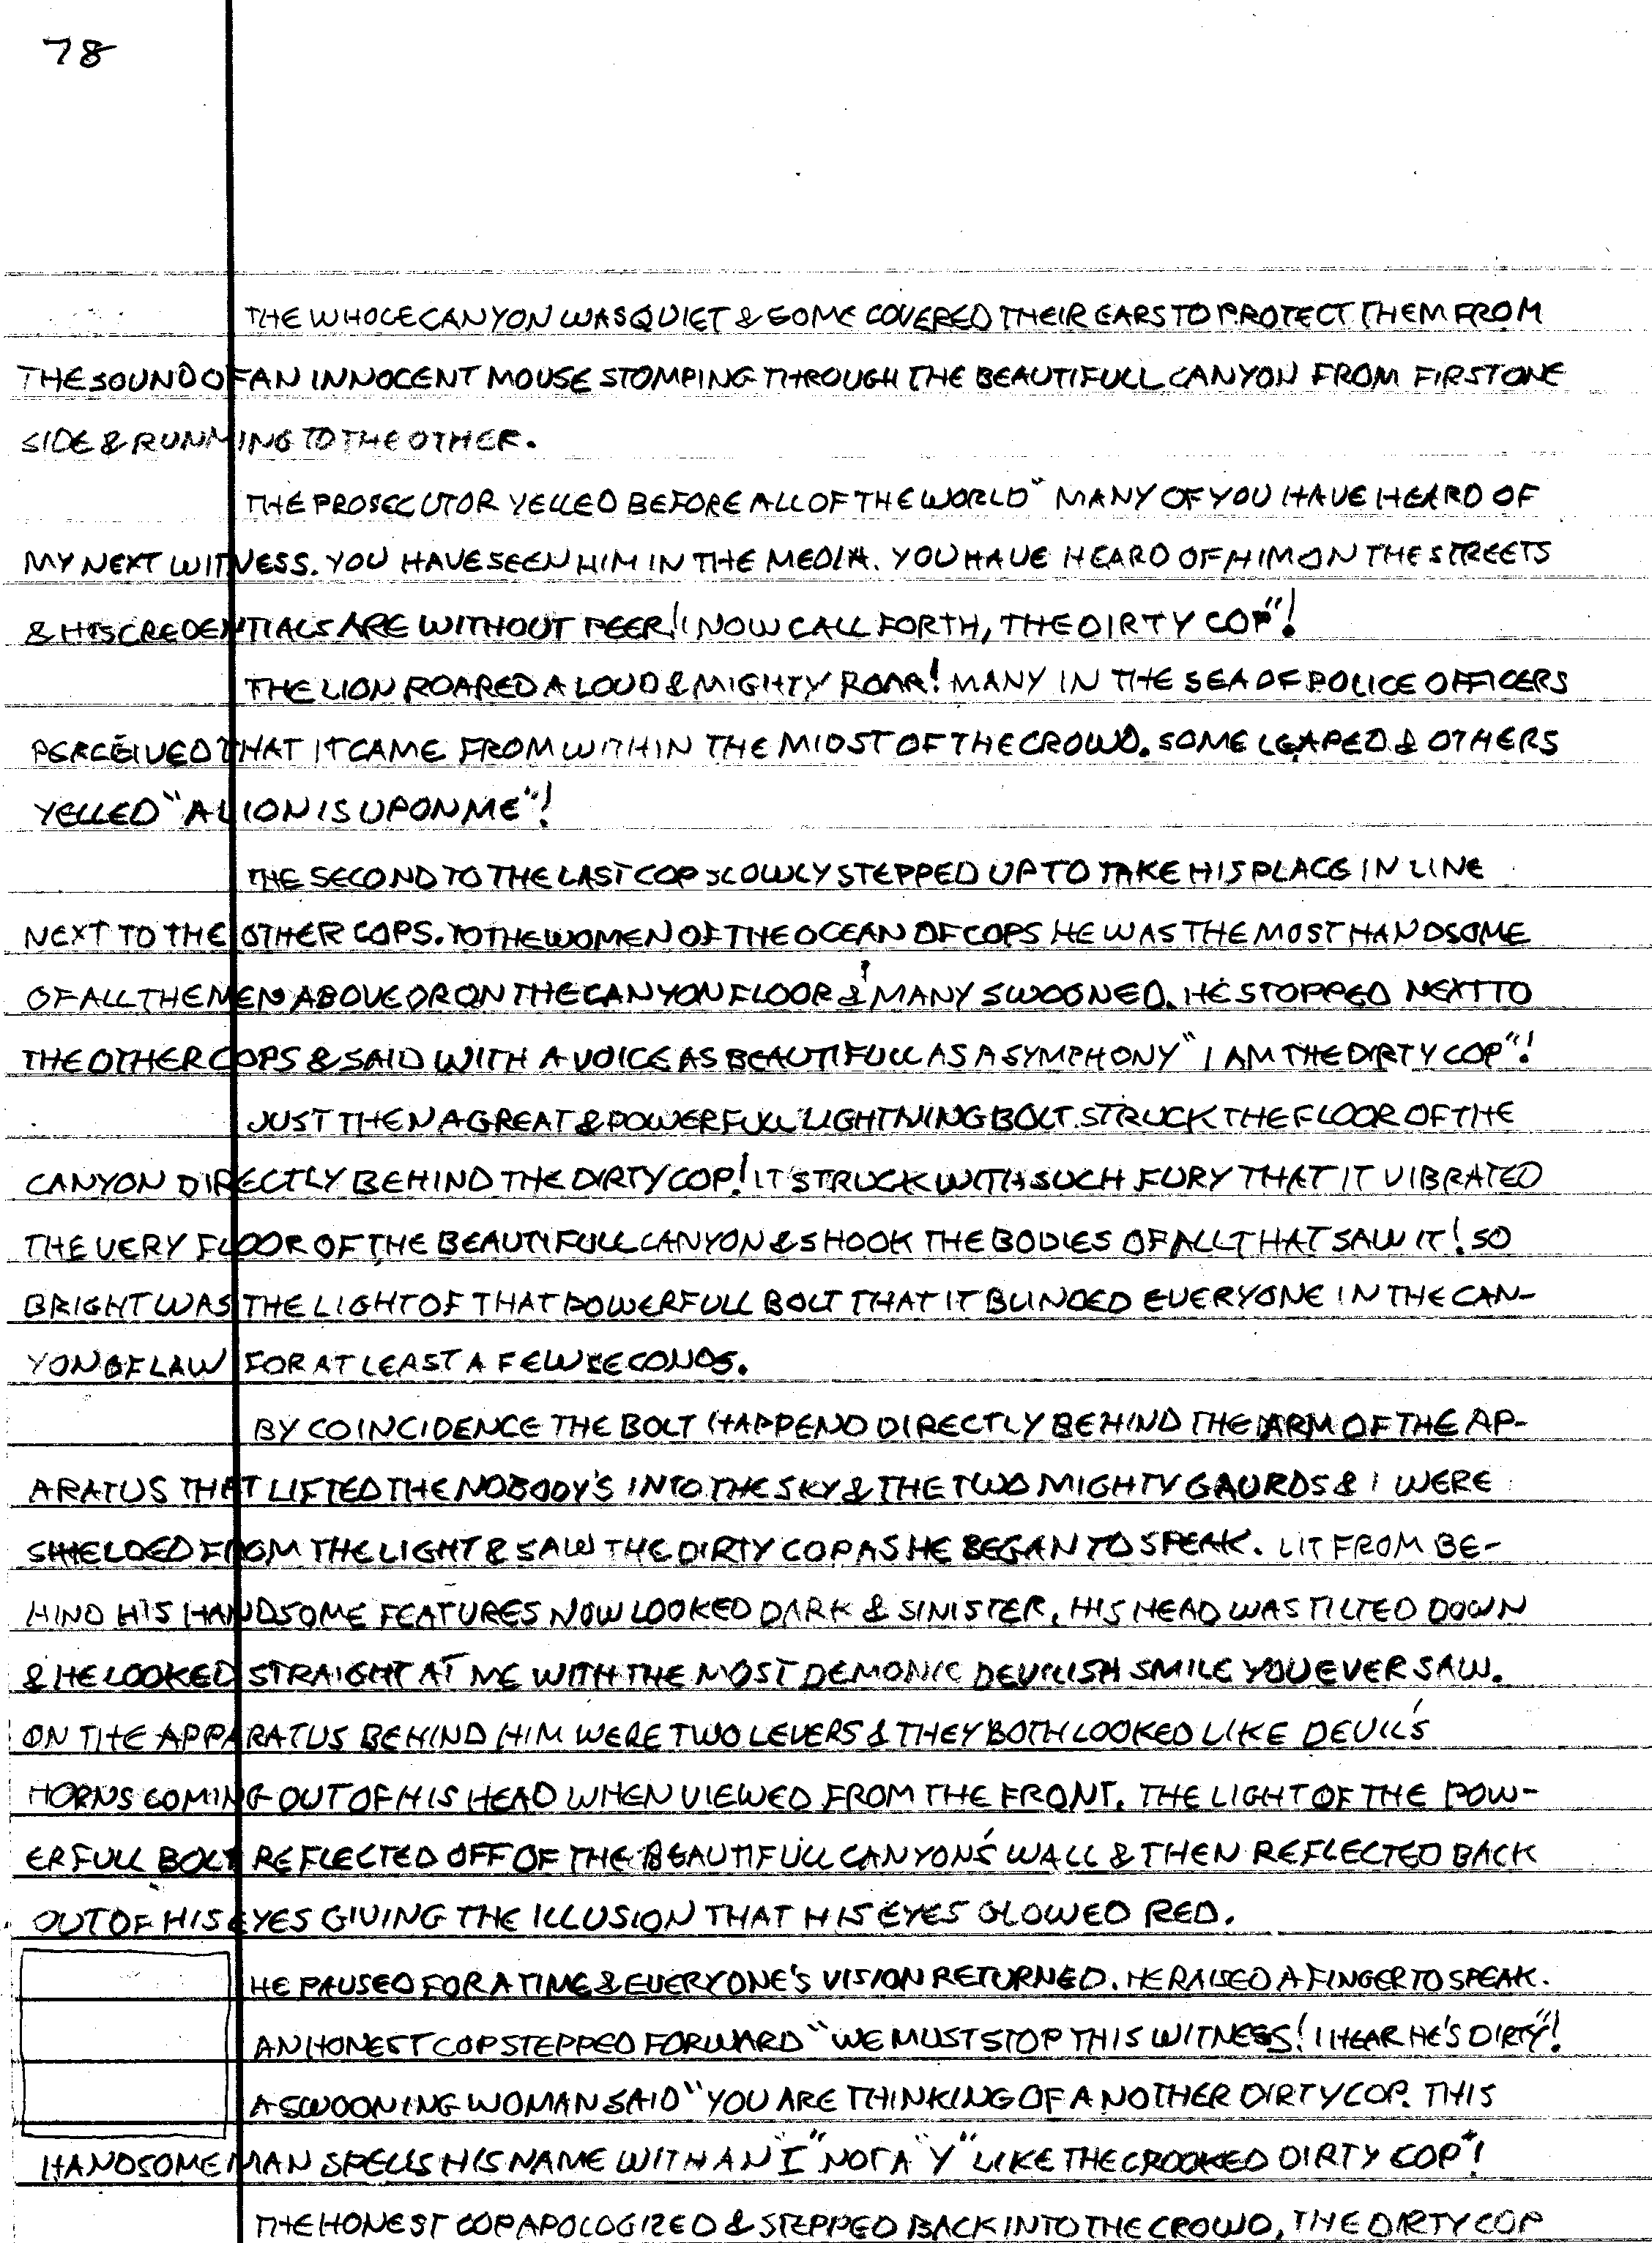 78
THE WHOLE CANYON WAS QUIET & SOME COVERED THEIR EARS TO PROTECT THEM FROM
THE SOUND OF AN INNOCENT MOUSE STOMPING THROUGH THE BEAUTIFULL CANYON FROM FIRST ONE
SIDE & RUNNING TO THE OTHER.
THE PROSECUTOR YELLED BEFORE ALL OF THE WORLD " MANY OF YOU HAVE HEARD OF
MY NEXT WITNESS. YOU HAVE SEEN HIM IN THE MEDIA. YOU HAVE HEARD OF HIM ON THE STREETS
& HIS CREDENTIALS ARE WITHOUT PEER! I NOW CALL FORTH, THE DIRTY COP"!
THE LION ROARED A LOUD & MIGHTY ROAR! MANY IN THE SEA OF POLICE OFFICERS
PERCEIVED THAT IT CAME FROM WITHIN THE MIDST OF THE CROWD. SOME LEAPED & OTHERS
YELLED "A LION IS UPON ME"!
THE SECOND TO THE LAST COP SLOWLY STEPPED UP TO TAKE HIS PLACE IN LINE
NEXT TO THE OTHER COPS. TO THE WOMEN OF THE OCEAN OF COPS HE WAS THE MOST HANDSOME
OF ALL THE MEN ABOVE OR ON THE CANYON FLOOR & MANY SWOONED. HE STOPPED NEXT TO
THE OTHER COPS & SAID WITH A VOICE AS BEAUTIFULL AS A SYMPHONY " I AM THE DIRTY COP"!
JUST THEN A GREAT & POWERFULL LIGHTNING BOLT STRUCK THE FLOOR OF THE
CANYON DIRECTLY BEHIND THE DIRTY COP! IT STRUCK WITH SUCH FURY THAT IT VIBRATED
THE VERY FLOOR OF THE BEAUTIFULL CANYON & SHOOK THE BODIES OF ALL THAT SAW IT! SO
BRIGHT WAS THE LIGHT OF THAT POWERFULL BOLT THAT IT BLINDED EVERYONE IN THE CAN-
YON OF LAW FOR AT LEAST A FEW SECONDS.
BY COINCIDENCE THE BOLT HAPPEND DIRECTLY BEHIND THE ARM OF THE AP-
ARATUS THAT LIFTED THE NOBODY'S INTO THE SKY & THE TWO MIGHTY GAURDS & I WERE
SHIELDED FROM THE LIGHT & SAW THE DIRTY COP AS HE BEGAN TO SPEAK. LIT FROM BE-
HIND HIS HANDSOME FEATURES NOW LOOKED DARK & SINISTER, HIS HEAD WAS TILTED DOWN
& HE LOOKED STRAIGHT AT ME WITH THE MOST DEMONIC DEVILISH SMILE YOU EVER SAW.
ON THE APPARATUS BEHIND HIM WERE TWO LEVERS & THEY BOTH LOOKED LIKE DEVIL'S
HORNS COMING OUT OF HIS HEAD WHEN VIEWED FROM THE FRONT. THE LIGHT OF THE POW-
ERFULL BOLT REFLECTED OFF OF THE BEAUTIFULL CANYON'S WALL & THEN REFLECTED BACK
OUT OF HIS EYES GIVING THE ILLUSION THAT HIS EYES GLOWED RED.
HE PAUSED FOR A TIME & EVERYONE'S VISION RETURNED. HE RAISED A FINGER TO SPEAK.
AN HONEST COP STEPPED FORWARD "WE MUST STOP THIS WITNESS! I HEAR HE'S DIRTY"!
A SWOONING WOMAN SAID "YOU ARE THINKING OF ANOTHER DIRTY COP. THIS
HANDSOME MAN SPELLS HIS NAME WITH AN "I" NOT A "Y" LIKE THE CROOKED DIRTY COP"!
THE HONEST COP APOLOGIZED & STEPPED BACK INTO THE CROWD, THE DIRTY COP